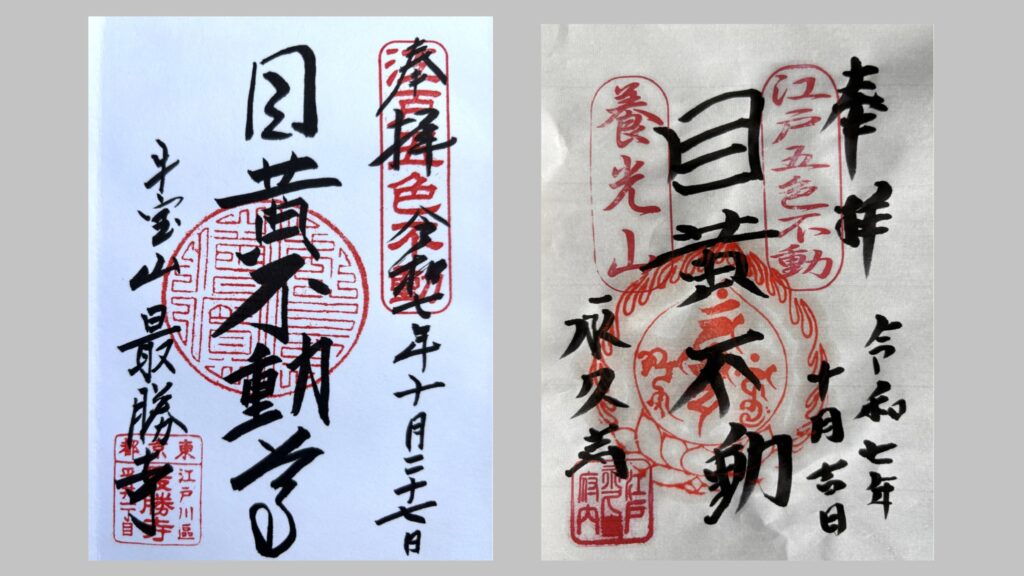 奉拝 令和七年十月二十七日
目黄不動尊
牛宝山 最勝寺
東京都
江戸川區
最勝寺
平井一丁目
奉拝
令和七年
十月吉日
江戸五色不動
目黄不動
養光山
永久寺
江戸
府内